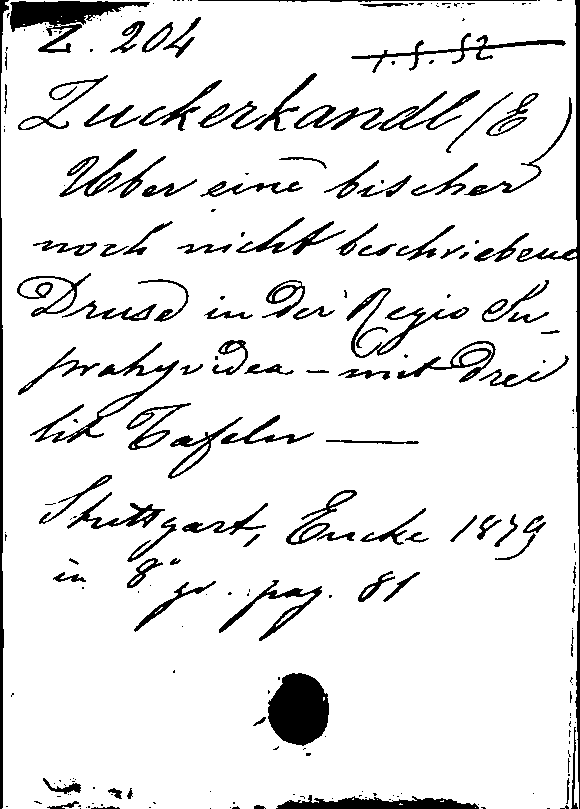 Z. 204
1.5.52
Zuckerkandl (E)
Über eine bischer
noch nicht beschriebene
Druse in der Regio Su-
prahyoidea - mit drei
lit Tafeln —
Stuttgart, Encke 1879
in 8° gr. pag. 81